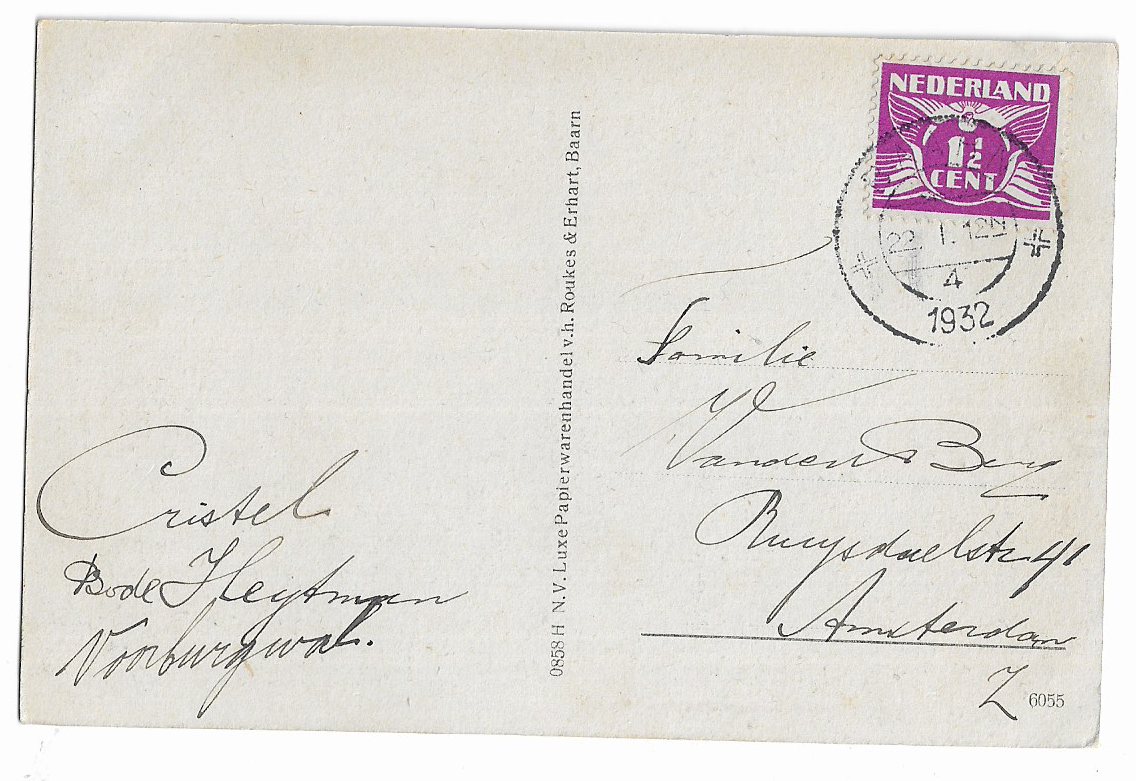 NEDERLAND
1½
CENT
22 I. 12N
4
1932
Familie
Van den Berg
Ruysdaelstr 41
Amsterdam
Z
6055
0858 H N.V. Luxe Papierwarenhandel v.h. Roukes & Erhart, Baarn
Cristel
Bode Heytman
Voorburgwal.